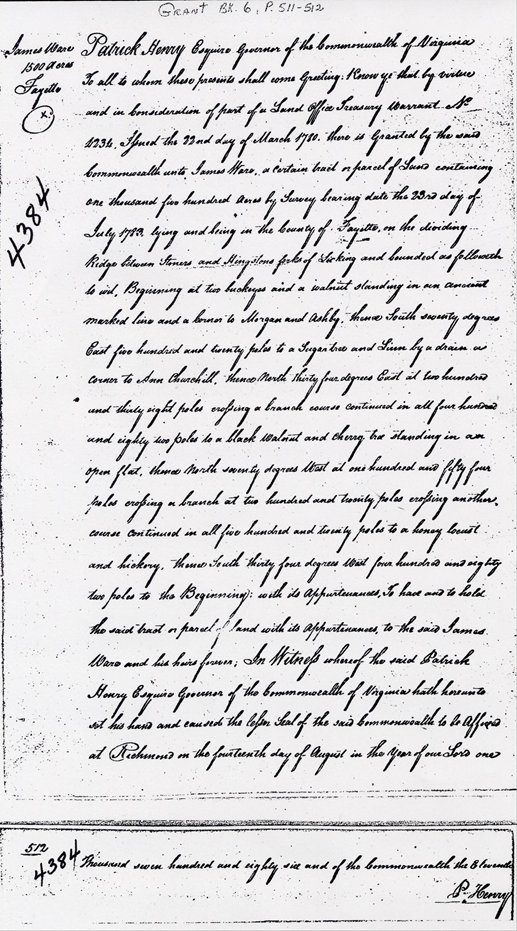 GRANT BK. 6, P. 511-512
James Ware
1500 Acres
Fayette
x.
4384
Patrick Henry Esquire Governor of the Commonwealth of Virginia
To all to whom these presents shall come Greeting: Know ye that by virtue
and in Consideration of part of a Land Office Treasury Warrant No
4234. Issued the 22nd day of March 1780. there is Granted by the said
Commonwealth unto James Ware, a certain tract or parcel of Land containing
one thousand five hundred Acres by Survey bearing date the 23rd day of
July 1783. lying and being in the County of Fayette, on the dividing
Ridge between Stoners and Hingstons forks of Licking and bounded as followeth
to wit, Beginning at two buckeyes and a walnut standing in an ancient
marked line and a corner to Morgan and Ashby, thence South seventy degrees
East five hundred and twenty poles to a Sugartree and Linn by a drain a
corner to Ann Churchill, thence North Thirty four degrees East at two hundred
and thirty eight poles crossing a branch course continued in all four hundred
and eighty two poles to a black walnut and Cherry tree standing in an
open flat, thence North seventy degrees West at one hundred and fifty four
poles crossing a branch at two hundred and twenty poles crossing another,
course continued in all five hundred and twenty poles to a honey locust
and hickory, thence South thirty four degrees West four hundred and eighty
two poles to the Beginning: with its Appurtenances, To have and to hold
the said tract or parcel of land with its Appurtenances, to the said James
Ware and his heirs forever; In Witness whereof the said Patrick
Henry Esquire Governor of the Commonwealth of Virginia hath hereunto
set his hand and caused the lesser Seal of the said Commonwealth to be Affixed
at Richmond on the fourteenth day of August in the Year of our Lord one
512
4384
Thousand seven hundred and eighty six and of the Commonwealth the Eleventh
P. Henry